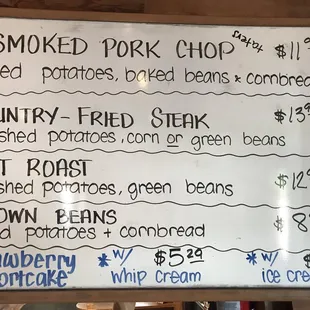 SMOKED PORK CHOP $11
ed potatoes, baked beans & cornbread
UNTRY-FRIED STEAK $13
shed potatoes, corn or green beans
T ROAST $12
shed potatoes, green beans
OWN BEANS $8
d potatoes + cornbread
awberry * w/ $5.29 * w/
ortcake whip cream ice cre